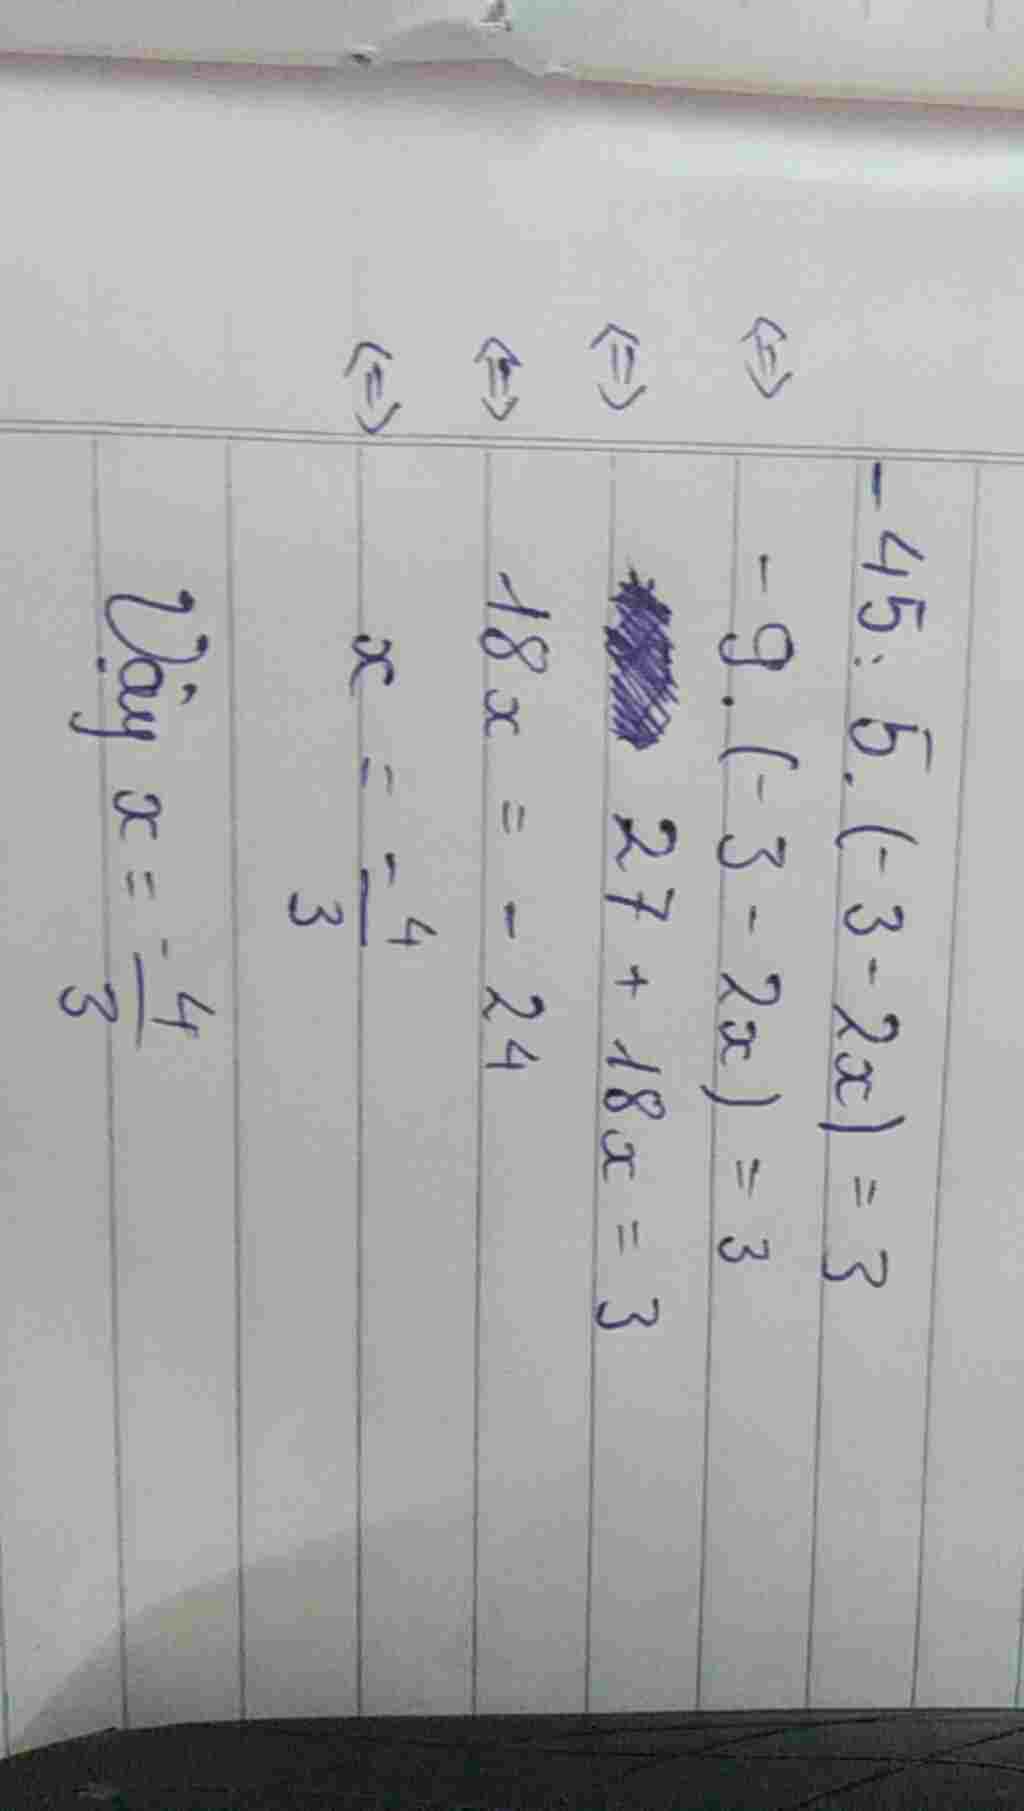 -45 : 5 . (-3 - 2x) = 3
<=> -9 . (-3 - 2x) = 3
<=> 27 + 18x = 3
<=> 18x = -24
<=> x = -4/3
Vậy x = -4/3